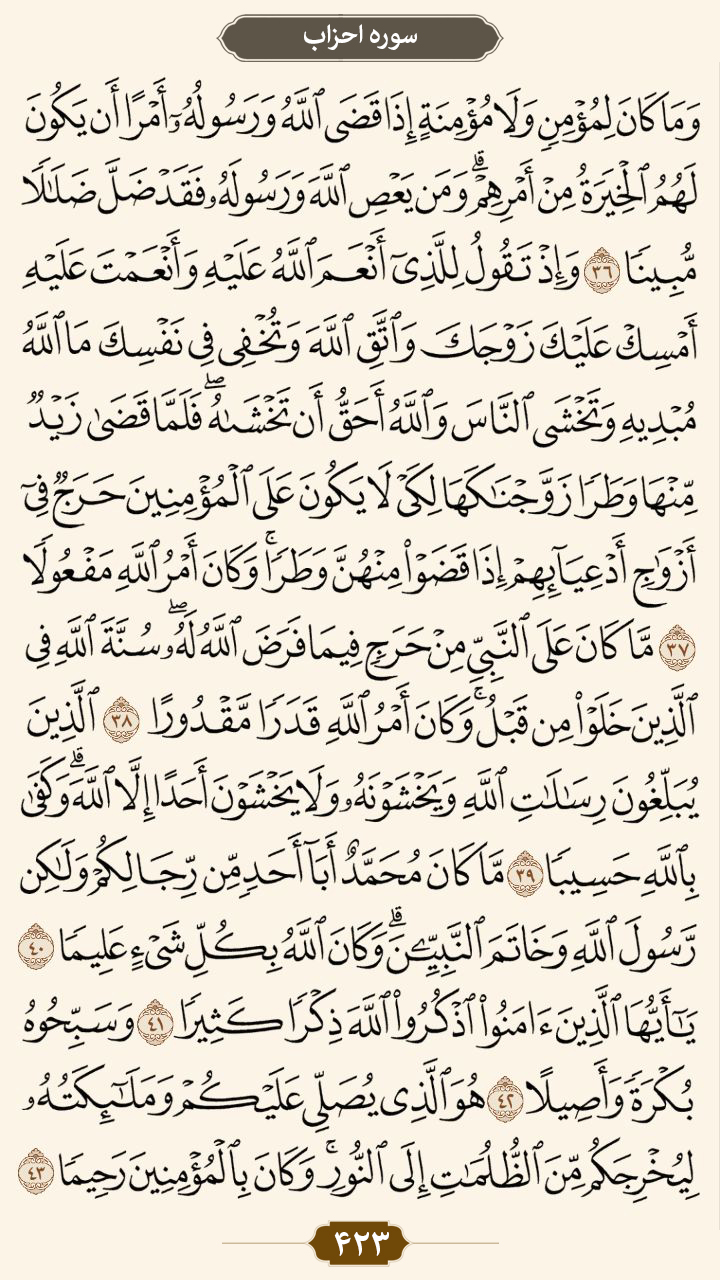 سوره احزاب
وَمَا كَانَ لِمُؤْمِنٍ وَلَا مُؤْمِنَةٍ إِذَا قَضَى ٱللَّهُ وَرَسُولُهُۥٓ أَمْرًا أَن يَكُونَ
لَهُمُ ٱلْخِيَرَةُ مِنْ أَمْرِهِمْۗ وَمَن يَعْصِ ٱللَّهَ وَرَسُولَهُۥ فَقَدْ ضَلَّ ضَلَٰلًا
مُّبِينًا ٣٦ وَإِذْ تَقُولُ لِلَّذِىٓ أَنْعَمَ ٱللَّهُ عَلَيْهِ وَأَنْعَمْتَ عَلَيْهِ
أَمْسِكْ عَلَيْكَ زَوْجَكَ وَٱتَّقِ ٱللَّهَ وَتُخْفِى فِى نَفْسِكَ مَا ٱللَّهُ
مُبْدِيهِ وَتَخْشَى ٱلنَّاسَ وَٱللَّهُ أَحَقُّ أَن تَخْشَىٰهُۖ فَلَمَّا قَضَىٰ زَيْدٌ
مِّنْهَا وَطَرًا زَوَّجْنَٰكَهَا لِكَىْ لَا يَكُونَ عَلَى ٱلْمُؤْمِنِينَ حَرَجٌ فِىٓ
أَزْوَٰجِ أَدْعِيَآئِهِمْ إِذَا قَضَوْا۟ مِنْهُنَّ وَطَرًاۚ وَكَانَ أَمْرُ ٱللَّهِ مَفْعُولًا
٣٧ مَّا كَانَ عَلَى ٱلنَّبِىِّ مِنْ حَرَجٍ فِيمَا فَرَضَ ٱللَّهُ لَهُۥۖ سُنَّةَ ٱللَّهِ فِى
ٱلَّذِينَ خَلَوْا۟ مِن قَبْلُۚ وَكَانَ أَمْرُ ٱللَّهِ قَدَرًا مَّقْدُورًا ٣٨ ٱلَّذِينَ
يُبَلِّغُونَ رِسَٰلَٰتِ ٱللَّهِ وَيَخْشَوْنَهُۥ وَلَا يَخْشَوْنَ أَحَدًا إِلَّا ٱللَّهَۗ وَكَفَىٰ
بِٱللَّهِ حَسِيبًا ٣٩ مَّا كَانَ مُحَمَّدٌ أَبَآ أَحَدٍ مِّن رِّجَالِكُمْ وَلَٰكِن
رَّسُولَ ٱللَّهِ وَخَاتَمَ ٱلنَّبِيِّۦنَۗ وَكَانَ ٱللَّهُ بِكُلِّ شَىْءٍ عَلِيمًا ٤٠
يَٰٓأَيُّهَا ٱلَّذِينَ ءَامَنُوا۟ ٱذْكُرُوا۟ ٱللَّهَ ذِكْرًا كَثِيرًا ٤١ وَسَبِّحُوهُ
بُكْرَةً وَأَصِيلًا ٤٢ هُوَ ٱلَّذِى يُصَلِّى عَلَيْكُمْ وَمَلَٰٓئِكَتُهُۥ
لِيُخْرِجَكُم مِّنَ ٱلظُّلُمَٰتِ إِلَى ٱلنُّورِۚ وَكَانَ بِٱلْمُؤْمِنِينَ رَحِيمًا ٤٣
۴۲۳